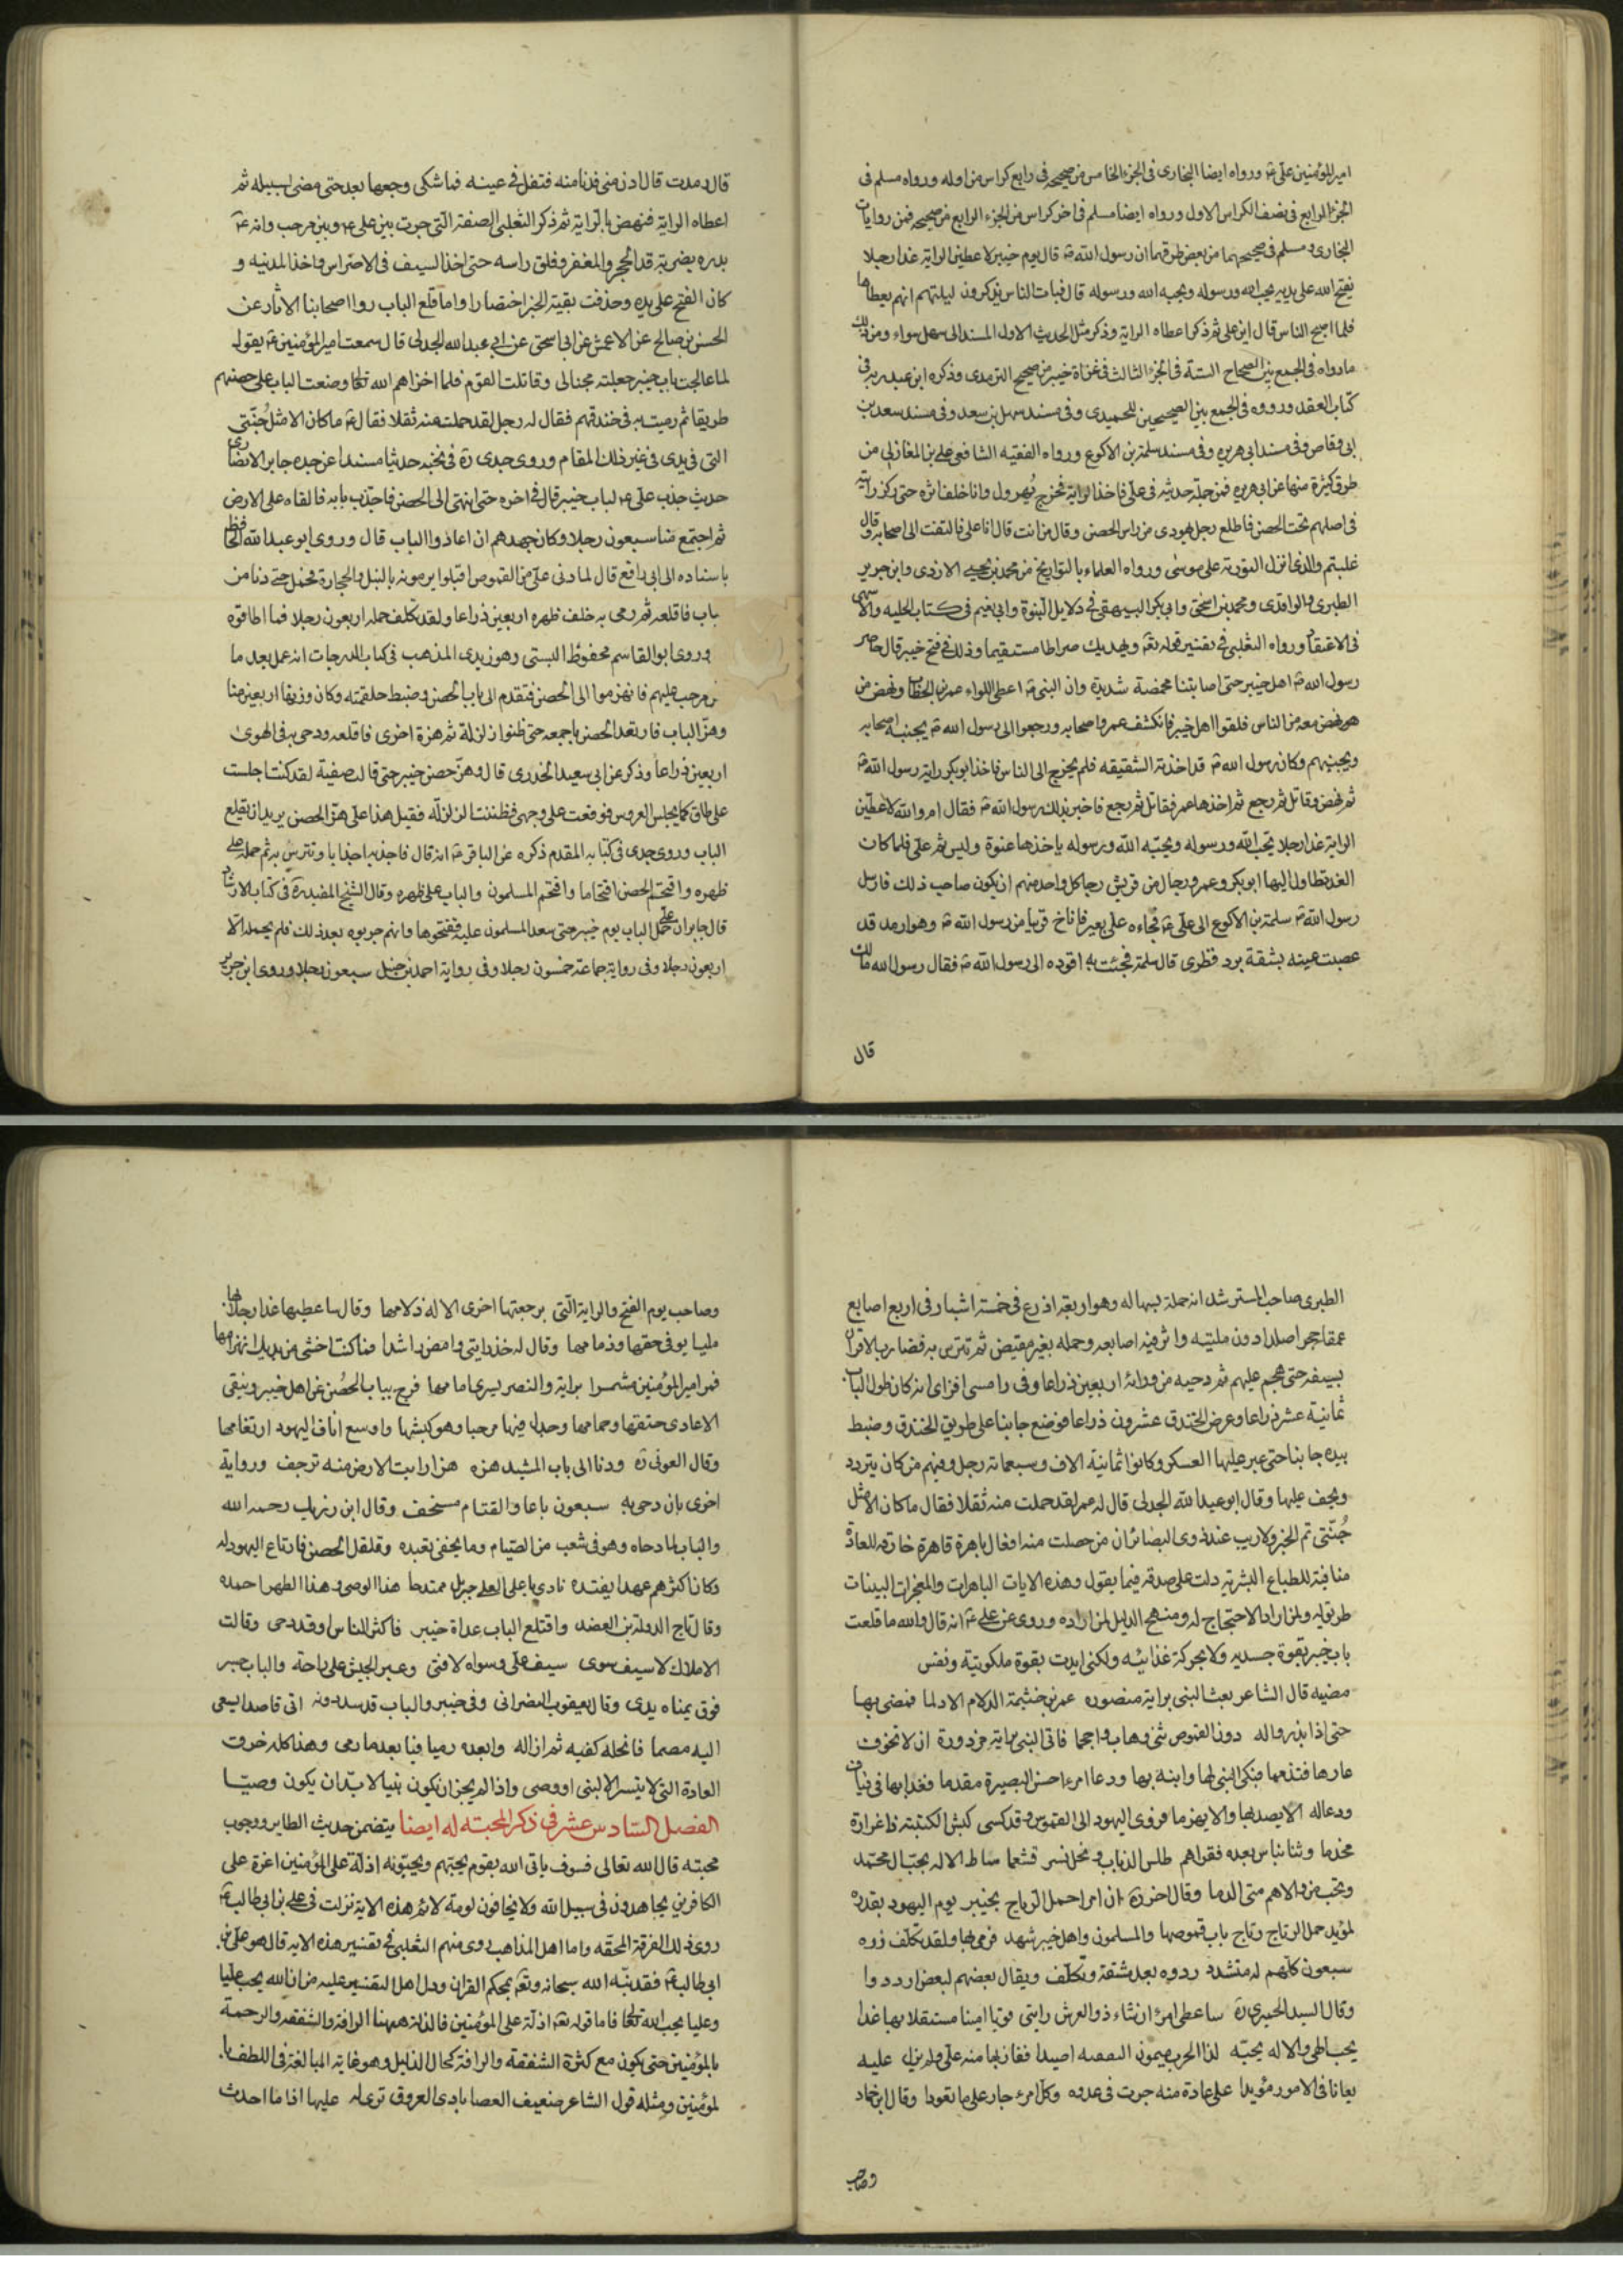 امير المؤمنين على ع ورواه ايضا البخارى فى الجزء الخامس من صحيحه فى رابع كراس من اوله ورواه مسلم فى
الجزء الرابع فى نصف الكراس الاول ورواه ايضا مسلم فى اخر كراس من الجزء الرابع من صحيحه فمن روايات
البخارى ومسلم فى صحيحهما من بعض طرقهما ان رسول الله ص قال يوم خيبر لاعطين الراية غدا رجلا
يفتح الله على يديه يحب الله ورسوله ويحبه الله ورسوله قال فبات الناس يذكرون ليلتهم انهم يعطاها
فلما اصبح الناس قال اين على ثم ذكر اعطاه الراية وذكر مثل الحديث الاول المسند الى سهل سواء ومن ذلك
مارواه فى الجمع بين الصحاح الستة فى الجزء الثالث فى غزاة خيبر من صحيح الترمدى وذكره ابن عبد ربه فى
كتاب العقد ورووه فى الجمع بين الصحيحين للحميدى وفى مسند سهل بن سعد وفى مسند سعد بن
ابى وقاص وفى مسند ابى هريره وفى مسند سلمة بن الاكوع ورواه الفقيه الشافعى على بن المغازلى من
طرق كثيرة منها عن ابى هريره فمن جملة حديثه فى على فاخذ الراية فخرج يهرول وانا خلف اثره حتى ركز رايته
فى اصلهم تحت الحصن فاطلع رجل يهودى من راس الحصن وقال من انت قال انا على فالتفت الى اصحابه وقال
غلبتم والذى انزل التورية على موسى ورواه العلماء بالتواريخ من محمد بن يحيى الازدى وابن جرير
الطبرى والواقدى ومحمد بن اسحق وابى بكر البيهقى فى دلايل النبوة وابى نعيم فى كتاب الحليه والاشنهى
فى الاعتقاد ورواه الثعلبى فى تفسير قوله تع ويهديك صراطا مستقيما وذلك فى فتح خيبر قال حاصر
رسول الله ص اهل خيبر حتى اصابتنا مخمصة شديدة وان النبى ص اعطى اللواء عمر بن الخطاب ونهض من
نهض معه من الناس فلقوا اهل خيبر فانكشف عمر واصحابه ورجعوا الى رسول الله ص يجبنه اصحابه
ويجبنهم وكان رسول الله ص قد اخذته الشقيقه فلم يخرج الى الناس فاخذ ابو بكر راية رسول الله ص
ثم نهض وقاتل ثم رجع ثم اخذها عمر فقاتل ثم رجع فاخبر بذلك رسول الله ص فقال ام والله لاعطين
الراية غدا رجلا يحب الله ورسوله ويحبه الله ورسوله ياخذها عنوة وليس ثم على فلما كان
الغد تطاول اليها ابو بكر وعمر ورجال من قريش رجا كل واحد منهم ان يكون صاحب ذلك فارسل
رسول الله ص سلمة بن الاكوع الى على ع فجاءه على بعير فاناخ قريبا من رسول الله ص وهو ارمد قد
عصبت عينه بشقة برد قطرى قال سلمة فجئت به اقوده الى رسول الله ص فقال رسول الله مالك
قال
قال رمدت قال ادن منى فدنا منه فتفل فى عينه فما شكى وجعها بعد حتى مضى لسبيله ثم
اعطاه الراية فنهض بالراية ثم ذكر الثعلبى الصفة التى جرت بين على ع وبين مرحب وانه ع
بدره بضربة قد الحجر والمغفر وفلق راسه حتى اخذ السيف فى الاضراس واخذ المدينه و
كان الفتح على يده وحذفت بقية الخبر اختصارا واما قلع الباب روا اصحابنا الاثار عن
الحسن بن صالح عن الاعمش عن ابى اسحق عن ابى عبد الله الجدلى قال سمعت امير المؤمنين ع يقول
لما عالجت باب خيبر جعلته مجنا لى وقاتلت القوم فلما اخزاهم الله تعا وضعت الباب على حصنهم
طريقا ثم رميت به فى خندقهم فقال له رجل لقد حملت منه ثقلا فقال ع ما كان الا مثل جنتى
التى فى يدى فى غير ذلك المقام وروى جدى ره فى نخبه حديثا مسندا عن جده جابر الانصارى
حديث جذب على ع لباب خيبر قال فى اخره حتى انتهى الى الحصن فاجتذب بابه فالقاه على الارض
ثم اجتمع منا سبعون رجلا وكان جهدهم ان اعاذوا الباب قال وروى ابو عبد الله الحافظ
باسناده الى ابى رافع قال لما دنى على من القموص اقبلوا يرمونه بالنبل والحجارة فحمل حتى دنا من
باب فاقلعه ثم رمى به خلف ظهره اربعين ذراعا ولقد تكلف حمله اربعون رجلا فما اطاقوه
وروى ابو القاسم محفوظ البستى وهو زيدى المذهب فى كتاب الدرجات انه عمل بعد ما
مرحب عليهم فانهزموا الى الحصن فتقدم الى باب الحصن وضبط حلقته وكان وزنها اربعين منا
وهز الباب فارتعد الحصن باجمعه حتى ظنوا زلزلة ثم هزة اخرى فاقلعه ودحى به فى الهوى
اربعين ذراعا وذكر عن ابى سعيد الخدرى قال وهز حصن خيبر حتى قالت صفية لقد كنت اجلست
على طاق كما يجلس العروس فوقعت على وجهى فظننت الزلزلة فقيل هذا على هز الحصن يريد ان يقلع
الباب وروى جدى فى كتابه المقدم ذكره عن الباقر ع انه قال فاجذبه اجذابا وتترس به ثم حمله على
ظهره واقتحم الحصن اقتحاما واقتحم المسلمون والباب على ظهره وقال الشيخ المفيد ره فى كتاب الارشاد
قال جابر ان على حمل الباب يوم خيبر حتى صعد المسلمون عليه ففتحوها وانهم جربوه بعد ذلك فلم يحمله الا
اربعون رجلا وفى رواية جماعة خمسون رجلا وفى رواية احمد بن حنبل سبعون رجلا وروى ابن جرير
الطبرى صاحب المسترشد انه حمله بشماله وهو اربعة اذرع فى خمسة اشبار فى اربع اصابع
عمقا حجر اصلدا دون مليته واثر فيه اصابعه وحمله بغير مقبض ثم تترس به فضارب الاقران
بسيفه حتى هجم عليهم ثم دحيه من ورائه اربعين ذراعا وفى رامش افزاى انه كان طول الباب
ثمانية عشر ذراعا وعرض الخندق عشرون ذراعا فوضع جانبا على طريق الخندق وضبط
بيده جانبا حتى عبر عليها العسكر وكانوا ثمانية الاف وسبعمائة رجل وفيهم من كان يتردد
ويخف عليها وقال ابو عبد الله الجدلى قال له عمر لقد حملت منه ثقلا فقال ما كان الا مثل
جنتى تم الخبر ولا ريب عند ذوى البصائر ان من حصلت منه افعال باهرة قاهرة خارقه للعادة
منافية للطباع البشرية دلت على صدقه فيما يقول وهذه الايات الباهرات والمعجزات البينات
طريق له ولمن اراد الاحتجاج له ومنهج الدليل لمن اراده وروى عن على ع انه قال والله ما قلعت
باب خيبر بقوة جسديه ولا بحركة غذائيه ولكنى ايدت بقوة ملكوتية ونفس
مضيه قال الشاعر بعث النبى براية منصوره عمر بن حنتمة الدلام الادلما فمضى بها
حتى اذا برزوا له دون القموص ثنى وهاب واحجما فاتى النبى براية مردودة ان لا تخوف
عارها فتذمما فبكى النبى لها وانبه بها ودعا امرءا حسن البصيرة مقدما فغدا بها فى فيلق
ودعا له الا يصد بها والا يهزما فزوى اليهود الى القموص وقد كسى كبش الكتيبة ذا غرارة
مخذما وثنا بناس بعده فقراهم طلس الذياب وكل نسر قشعما ساط الاله بحب ال محمد
وبحب من والاهم منى الدما وقال اخر ره ان امرا حمل الرتاج بخيبر يوم اليهود بقدرة
لمؤيد حمل الرتاج رتاج باب قموصها والمسلمون واهل خيبر شهد فرمى بها ولقد تكلف رده
سبعون كلهم له متشدد ردوه بعد مشقة وتكلف ويقال بعضهم لبعض ارددوا
وقال السيد الحميرى ره ساعطى امرءا ان شاء ذو العرش رايتى قويا امينا مستقلا بها غدا
يحب اطى والاله يحبه لذا الحرب ميمون النقيبه اصيدا ففاز بها منه على ولم يزل عليه
معانا فى الامور مؤيدا على عادة منه جرت فى عدوه وكل امرء جار على ما تعودا وقال ابن حماد
وصاحب
وصاحب يوم الفتح والراية التى برجعتها اخرى الاله ذلامها وقال ساعطيها غدا رجلا بها
مليا يوفى حقها وذمامها وقال له خذ رايتى وامض راشدا فما كنت اخشى من يديك انهزامها
فمر امير المؤمنين مشمرا براية والنصر يسرى امامها فزج بباب الحصن عن اهل خيبر وسقى
الاعادى حتفها وحمامها وجدل فيها مرحبا وهو كبشها واوسع اناف اليهود ارتغامها
وقال العونى ره ودنا الى باب المشيد هزه هزا رايت الارض منه ترجف ورواية
اخرى بان دحى به سبعون باعا والقتام مسخف وقال ابن رزيك رحمه الله
والباب لما دحاه وهو فى شغب من الصيام وما يخفى تعبده وقلقل الحصن فارتاع اليهود له
وكان اكثرهم عهدا يفنده نادى باعلى العلى جبريل ممتدحا هذا الوصى وهذا الطهر احمده
وقال تاج الدولة بن العضد واقتلع الباب غداة خيبر فاكثر الناس وقد دحى وقالت
الاملاك لا سيف سوى سيف على وسواه لا فتى وعبر الجيش على راحة والباب جسر
فوق يمناه يدى وقال يعقوب النصرانى وفى خيبر والباب قد سد دونه اتى قاصدا يسعى
اليه مصما فانحله كفيه ثم ازاله وابعده رميا فيا بعد ما رمى وهذا كله خرق
العادة التى لا يتيسر الا لنبى او وصى واذا لم يجز ان يكون نبيا لا بد ان يكون وصيا
الفصل السادس عشر فى ذكر المحبته له ايضا يتضمن حديث الطاير ووجوب
محبته قال الله تعالى فسوف ياتى الله بقوم يحبهم ويحبونه اذلة على المؤمنين اعزة على
الكافرين يجاهدون فى سبيل الله ولا يخافون لومة لائم هذه الاية نزلت فى على بن ابى طالب ع
روى ذلك الفرقة المحقه واما اهل المذاهب روى منهم الثعلبى فى تفسير هذه الاية قال هو على بن
ابى طالب ع فقد نبه الله سبحانه وتع بمحكم القران ودل اهل التفسير عليه من ان الله يحب عليا
وعليا يحب الله تعا فاما قوله تع اذلة على المؤمنين فالذلة ههنا الرافة والشفقه والرحمة
بالمؤمنين حتى يكون مع كثرة الشفقة والرافة كحال الذليل وهو غاية المبالغة فى اللطف با
لمؤمنين ومثله قول الشاعر ضعيف العصا بادى العروق ترى له عليها اذا ما احدث